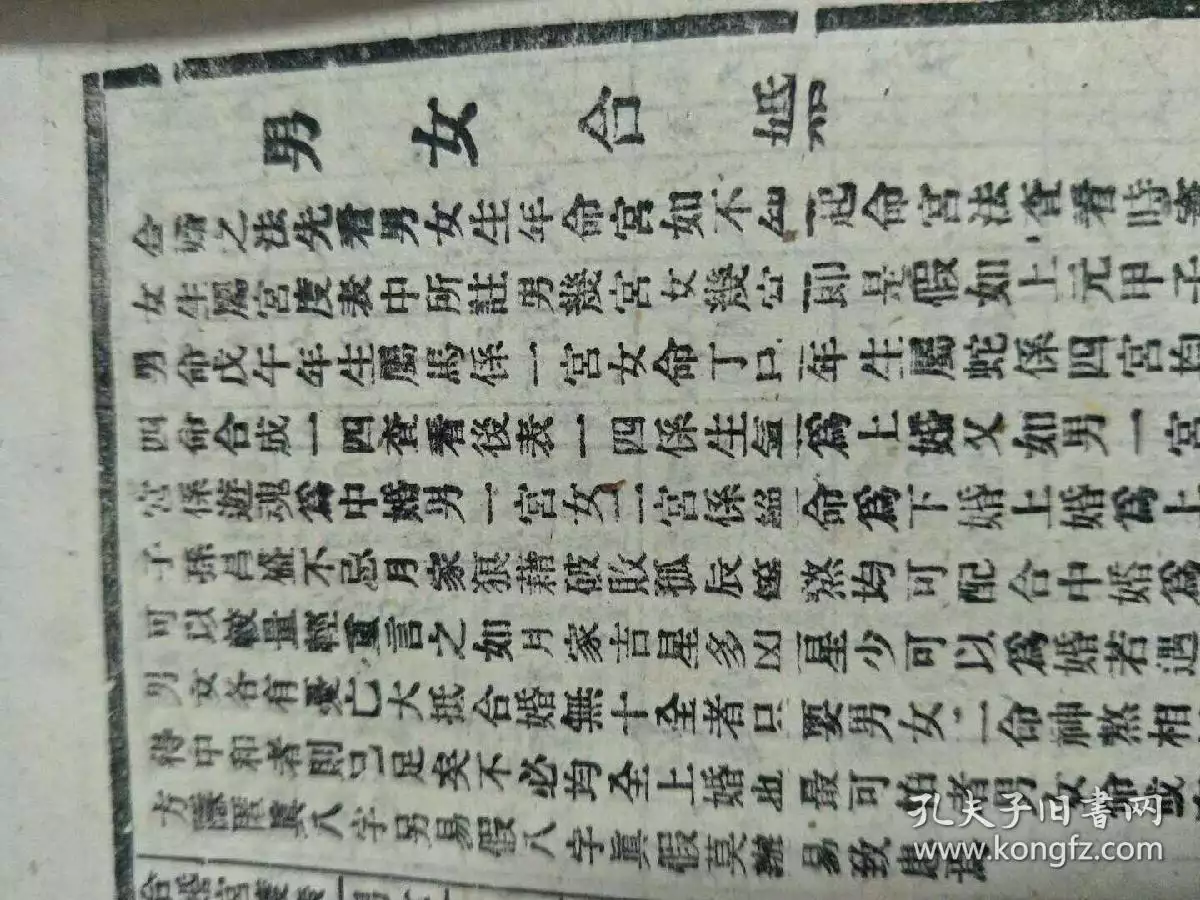 男女合婚
合婚之法先看男女生年命宮如不知起命宮法查看時
女生屬宮度表中所註男幾宮女幾宮即是假如上元甲子
男命戊午年生屬馬係一宮女命丁巳年生屬蛇係四宮
四命合成一四查看後表一四係生氣爲上婚又如男一宮
宮係遊魂爲中婚男一宮女二宮係絕命爲下婚上婚爲上
子孫昌盛不忌月家狼藉破敗孤辰等煞均可配合中婚爲
可以較量輕重言之如月家吉星多凶星少可以爲婚若遇
男女各有憂亡大抵合婚無十全者只要男女二命神煞相
得中和者則已足矣不必均全上婚也最可怕者男女命或
方隱匿眞八字另易假八字眞假莫辨易致
合婚宮度表
孔夫子旧书网
www.kongfz.com